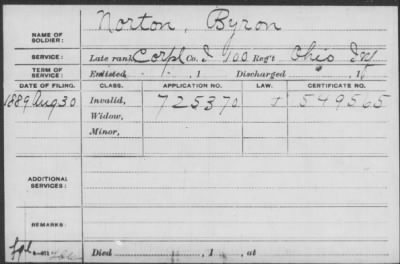 Norton, Byron
NAME OF SOLDIER:
SERVICE: Late rank Corpl Co. I 100 Reg't Ohio Inf
TERM OF SERVICE: Enlisted , 1 Discharged , 1
DATE OF FILING. CLASS. APPLICATION NO. LAW. CERTIFICATE NO.
1889 Aug 30 Invalid, 725370 549565
Widow,
Minor,
ADDITIONAL SERVICES:
REMARKS:
Died , 1 , at